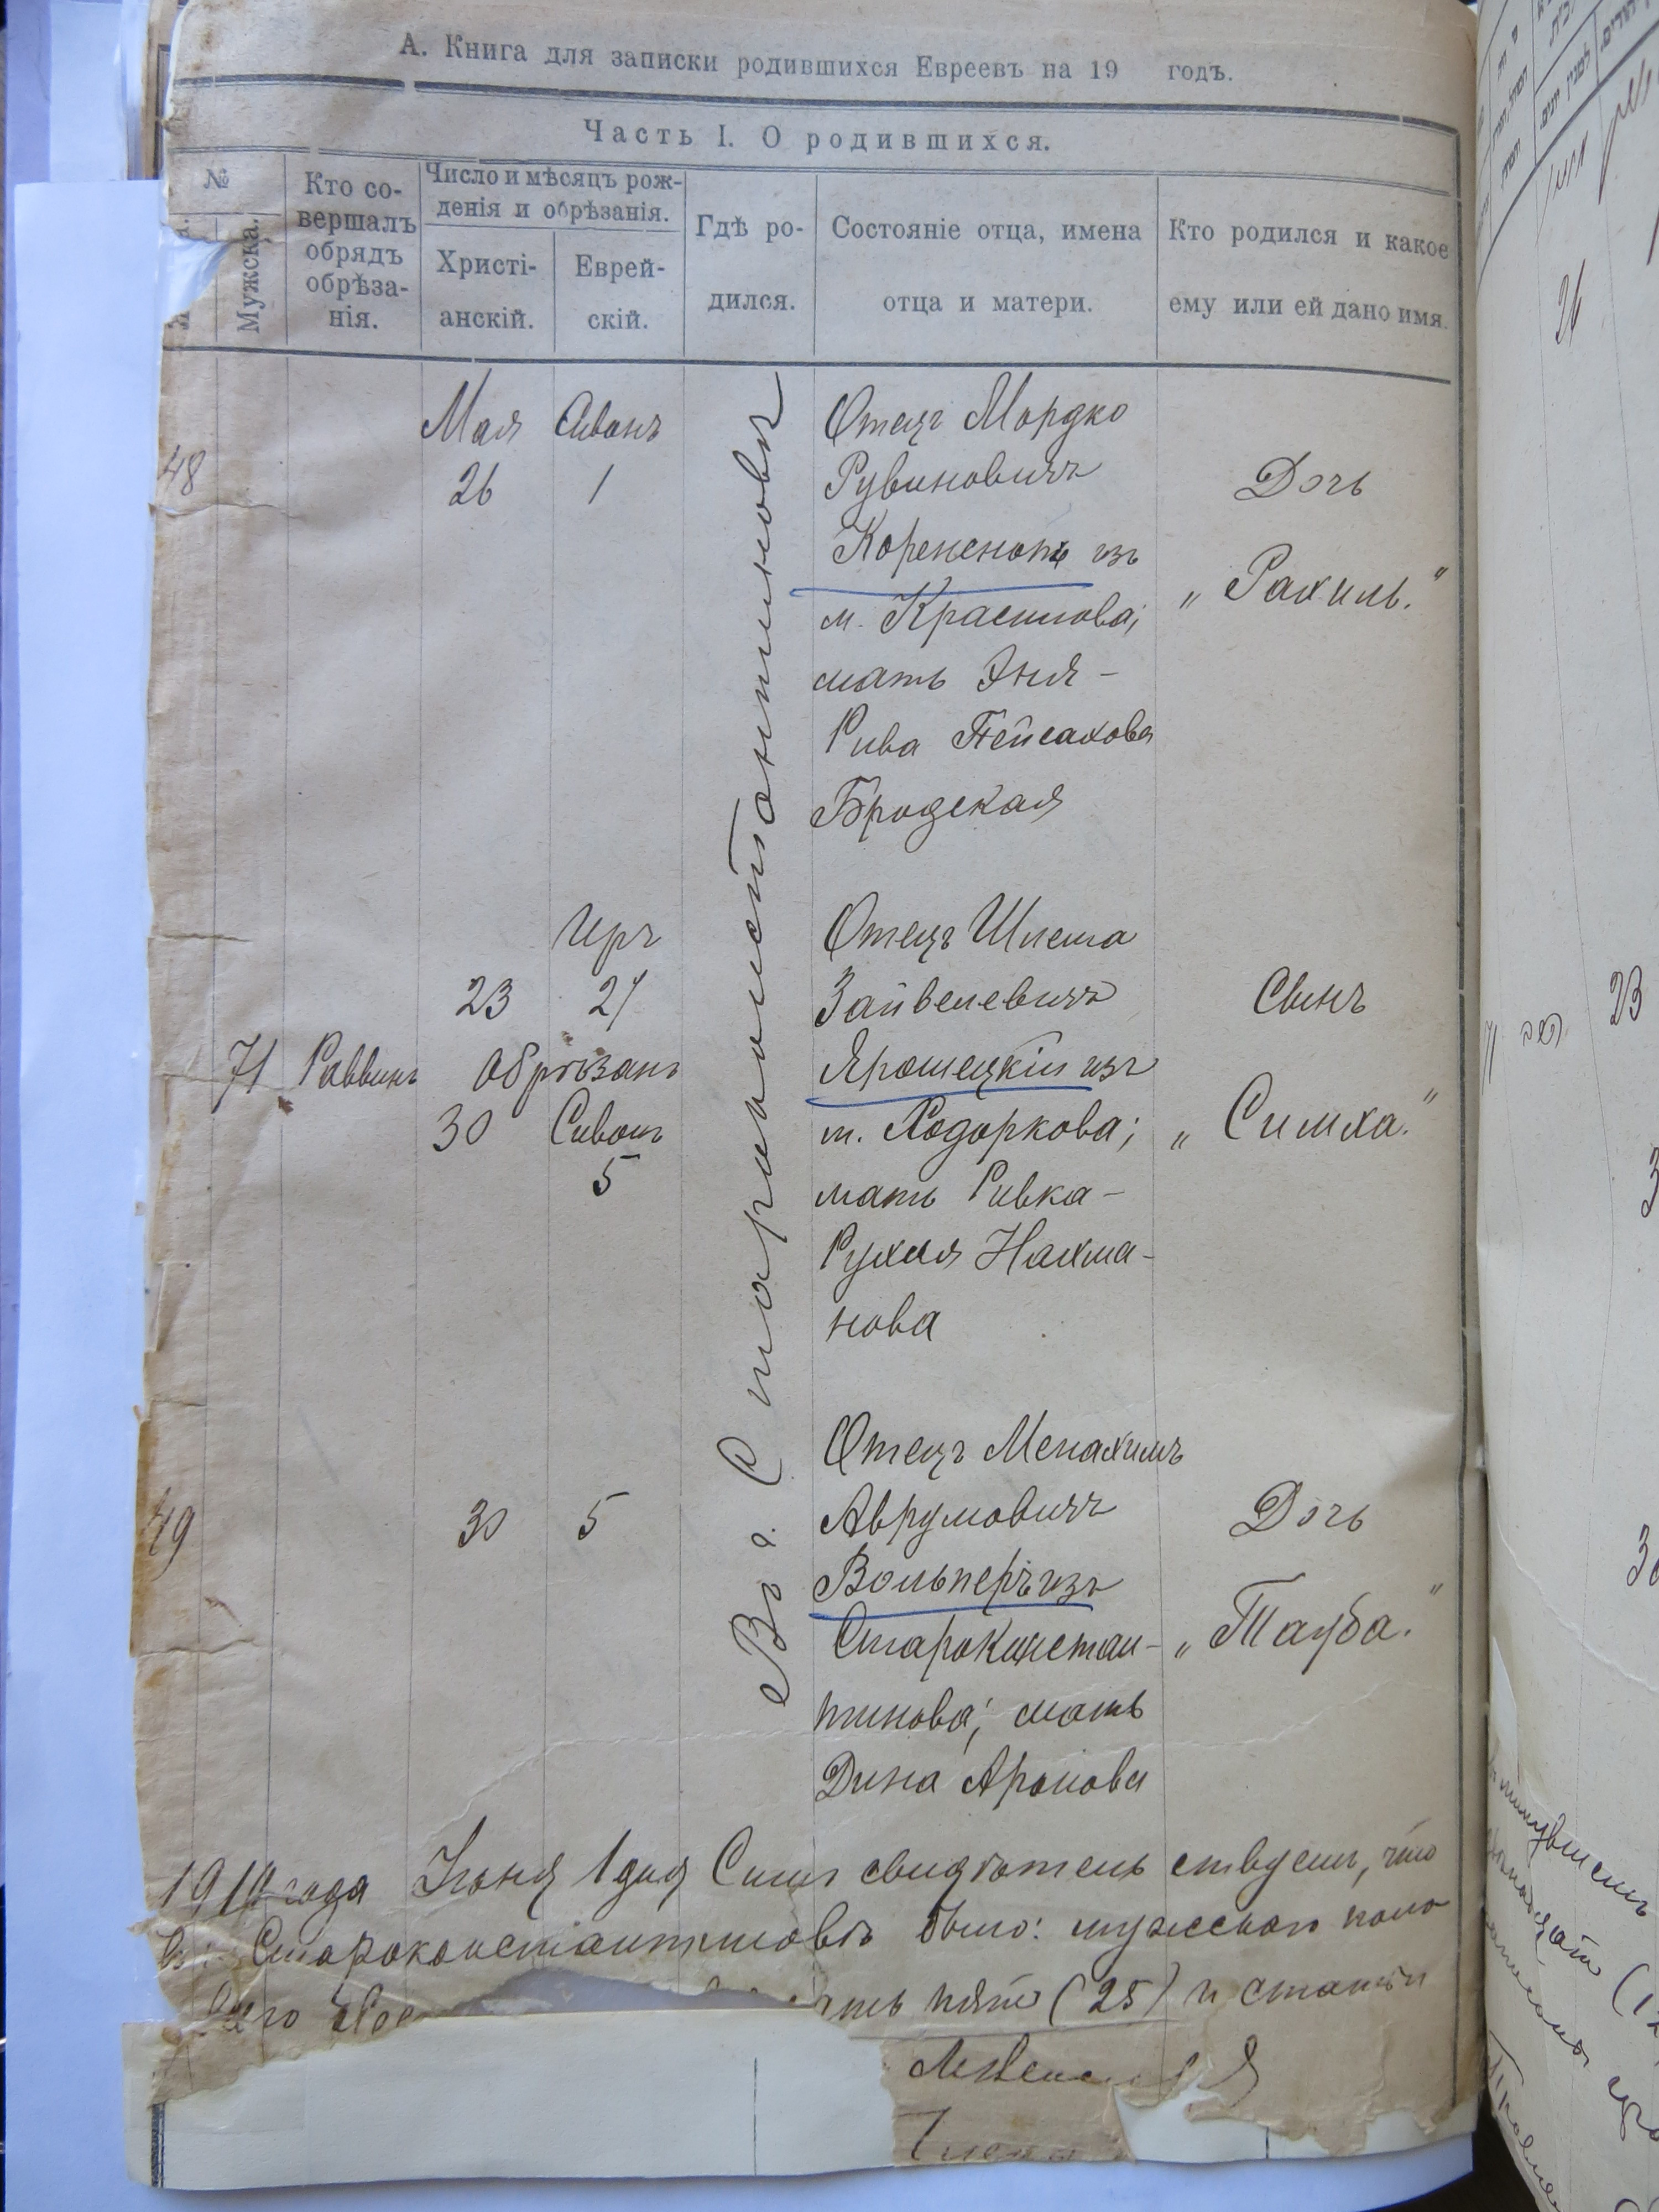 А. Книга для записки родившихся Евреевъ на 19 годъ.
Часть I. О родившихся.
№
Мужска.
Кто со-
вершалъ
обрядъ
обрѣза-
нія.
Число и мѣсяцъ рож-
денія и обрѣзанія.
Христі-
анскій.
Еврей-
скій.
Гдѣ ро-
дился.
Состояніе отца, имена
отца и матери.
Кто родился и какое
ему или ей дано имя.
Въ г. Староконстантиновѣ
48
Мая Сиванъ
26 1
Отецъ Мордко
Рувиновичъ
изъ
м. Красилова;
мать Эня-
Рива Пейсахова
Бродская
Дочь
„Рахиль."
Иръ
23 21
71 Раввинъ Обрѣзанъ
30 Сиванъ
5
Отецъ Шлема
Зайвелевичъ
Ярошецкій изъ
м. Ходоркова;
мать Ривка-
Рухля Нахма-
нова
Сынъ
„Симха."
49
30 5
Отецъ Менахимъ
Аврумовичъ
Вольперъ изъ
Староконстан-
тинова; мать
Дина Аронова
Дочь
„Тауба."
1910 года Іюня 1 дня Симъ свидѣтельствуемъ, что
въ г. Староконстантиновѣ было: мужескаго пола
пять (25) и статьи
23